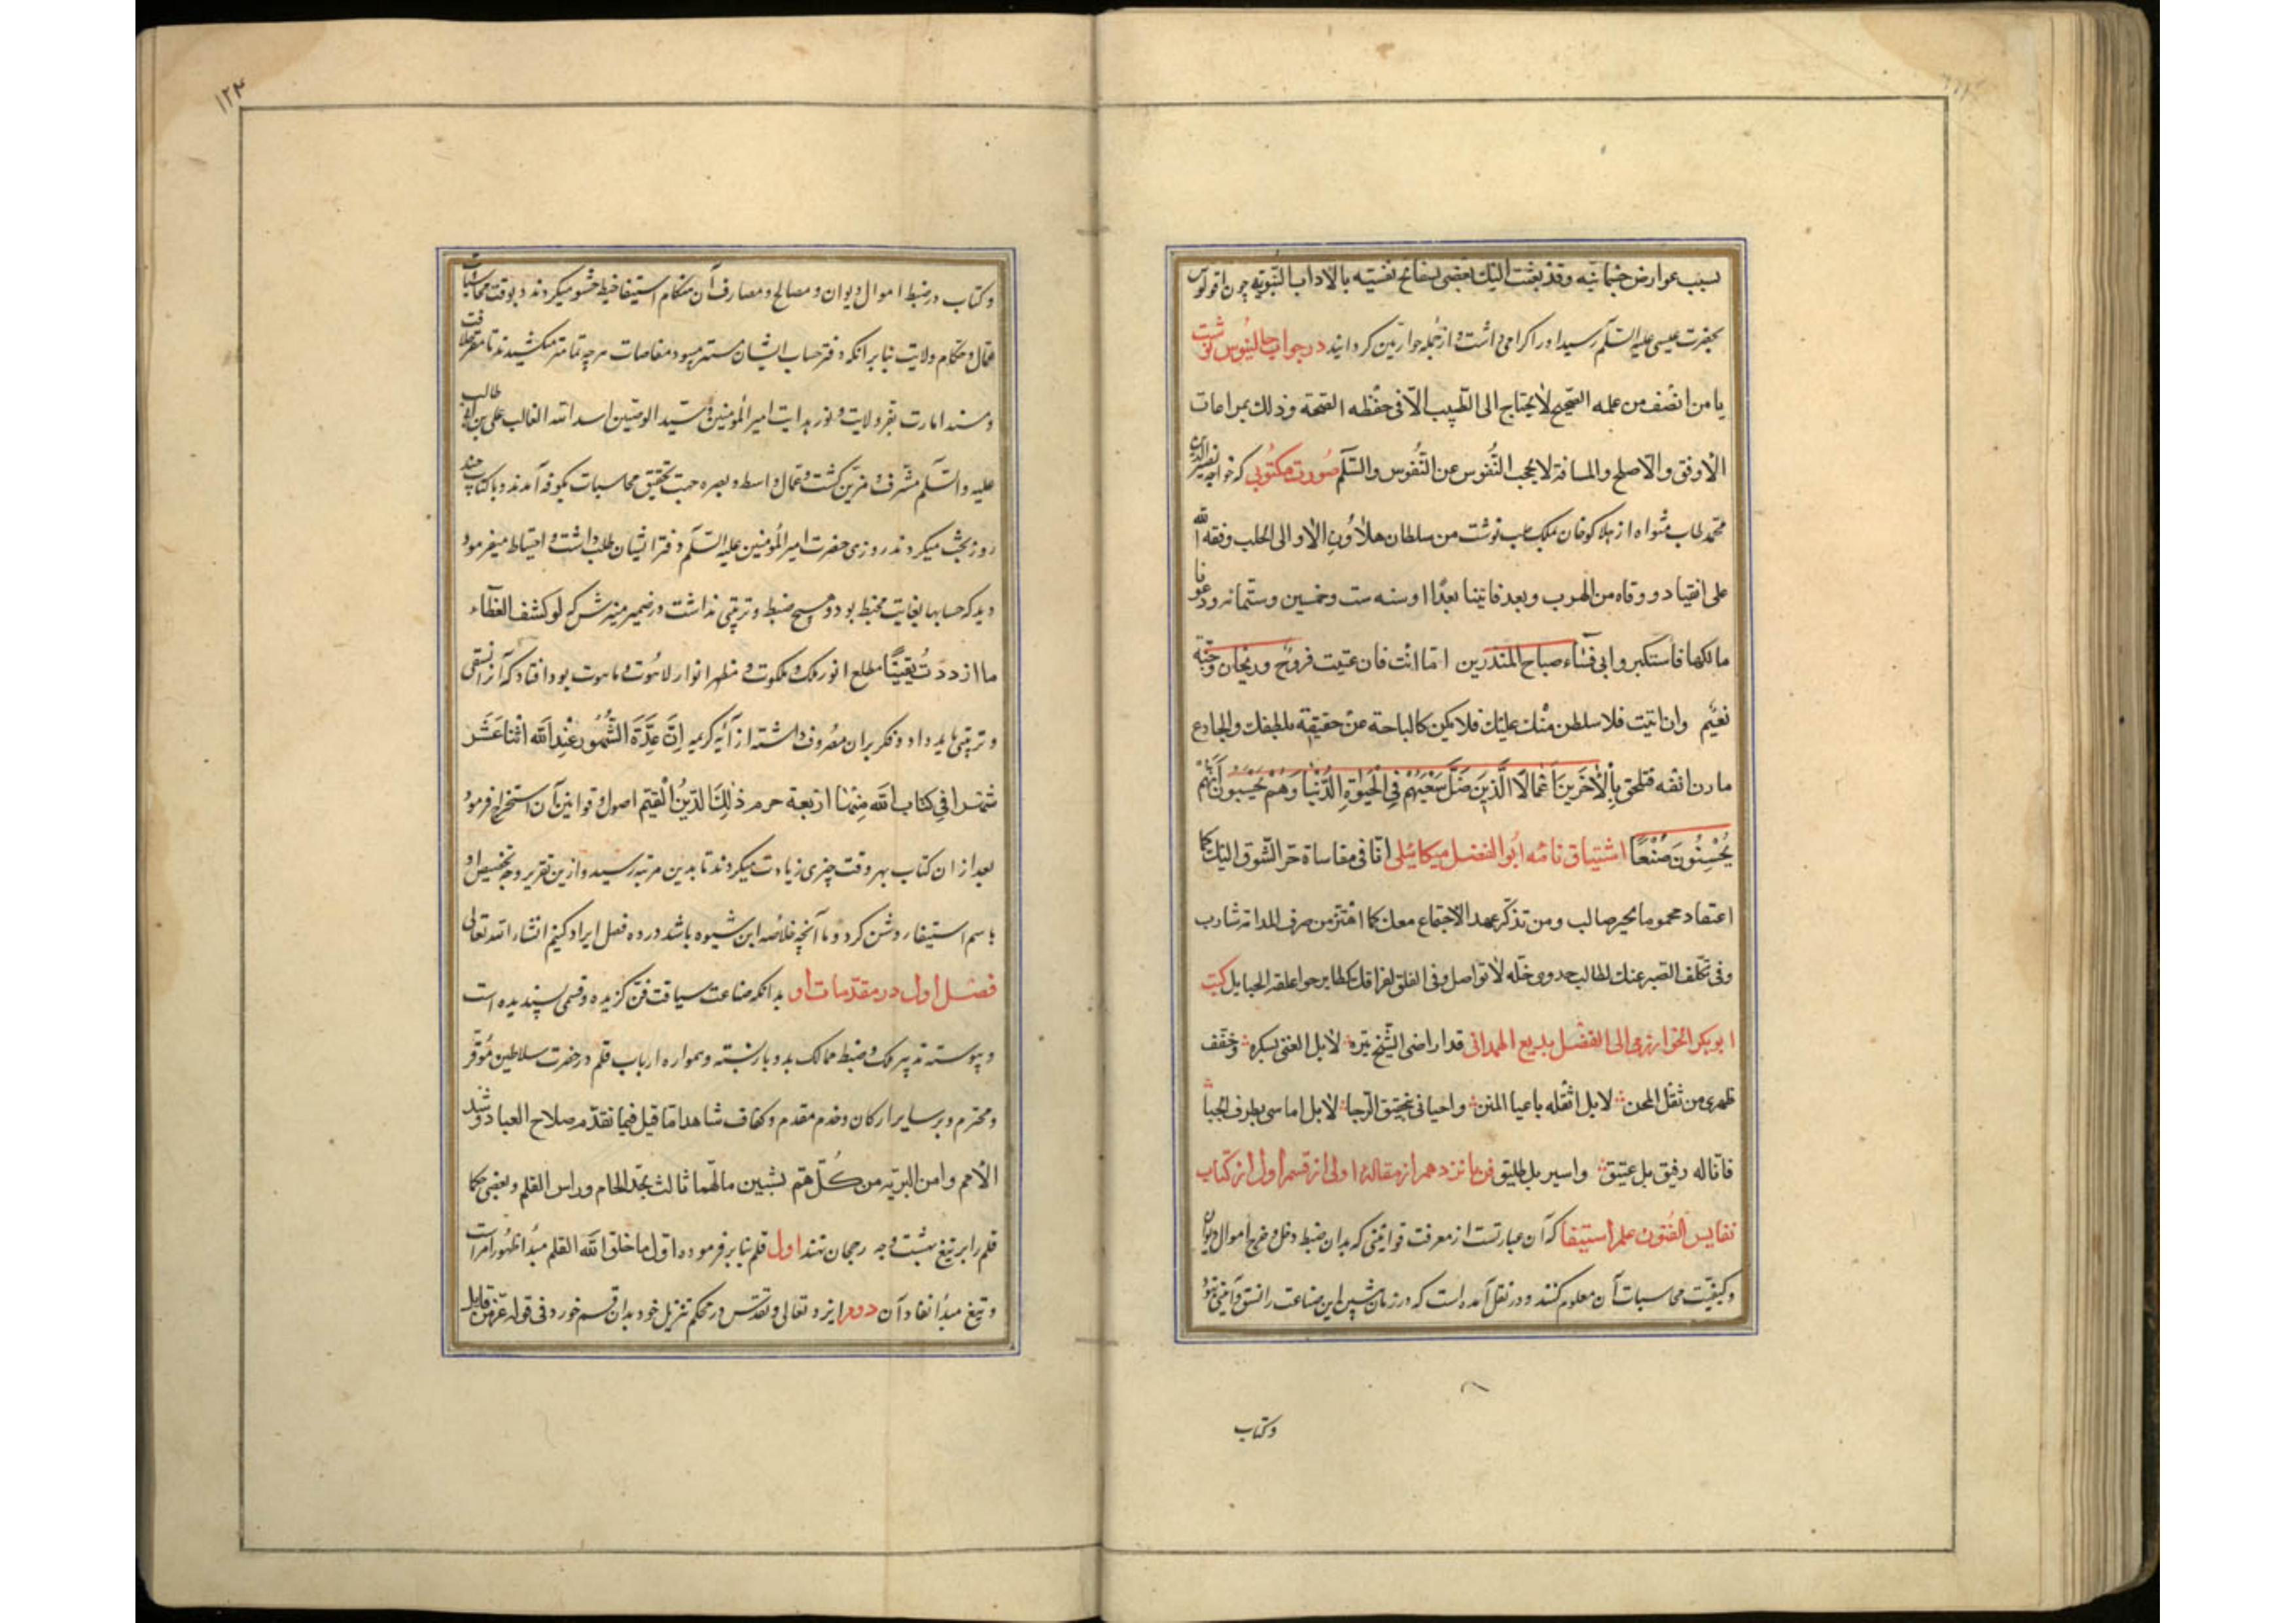 بسبب عوارض جسمانیه وقد بعثت الیک بعضی بسفایح نفسیه بالاداب النبویه چون اقولوس
بحضرت عیسی علیه السلم رسید اورا کرامی داشت و از جمله حواریین کردانید در جواب جالینوس نوشت
یا من انصف من علمه الصحیح لا یحتاج الی الطبیب الا فی حفظه الصحة وذلک بمراعات
الاوفق والاصلح والمسافة لا یحجب النفوس عن النفوس والسلم صورت مکتوبی که خواجه نصیر الدین
محمد طاب مثواه از هلاکوخان بملک حلب نوشت من سلطان هلاوون الاو الی الحلب وفقه الله
علی انقیاد ووقاه من الهرب وبعد فاتینا بغداد سنه ست وخمسین وستمائه ودعونا
مالکها فاستکبر وابی فساء صباح المنذرین اما انت فان عتیت فروح وریحان وجنة
نعیم وان ابیت فلا سلطن منک علیک فلا یکن کالباحثه عن حقیقة بلطیفک والجادع
مارن انفه فتلحق بالاخرین اعمالا الذین ضل سعیهم فی الحیوة الدنیا وهم یحسبون انهم
یحسنون صنعا اشتیاق نامه ابوالفضل میکائیلی انا فی مقاساة حر الشوق الیک کما
اعتقاد محموما بخیبر صالب ومن تذکر عهد الاجتماع معک کما اهتز من صرف المدامه شارب
وفی تکلف الصبر عنک لطالب جدوی خله لا تواصل وفی القلق لفراقک کطایر حواعلقه الحبایل کتب
ابو بکر الخوارزمی الی الفضل بدیع الهمدانی قد اراضی الشیخ بتره لابل العنی بسکره وخفف
ظهری من ثقل المحن لابل اثقله باعیا المنن واحیانی بتحقیق الرجا لابل اماتنی بطرف الحیا
فاناله رفیق بل عتیق واسیر بل طلیق فن پانزدهم از مقاله اولی از قسم اول از کتاب
نفایس الفنون علم استیفا که آن عبارتست از معرفت قوانینی که بدان ضبط دخل و خرج اموال دیوان
و کیفیت محاسبات آن معلوم کنند و در نقل آمده است که در زمان پیشین این صناعت را نسق و آئینی نبود
وکتاب
۱۲۴
وکتاب در ضبط اموال دیوان و مصالح و مصارف آن هنکام استیفا خیط حشو میکردند و بوقت محاسبات
عمال و حکام ولایت بنا بر انکه دفتر حساب ایشان مستمر میبود مفاصات هرچه تمامتر میکشیدند تا مقر خلافت
و مسند امارت بفر ولایت و نور هدایت امیر المؤمنین و سید الوصیین اسد الله الغالب علی بن ابی طالب
علیه والسلم مشرف و مزین کشت و عمال واسط و بصره جهت تحقیق محاسبات بکوفه آمدند و با کتاب چند
روز بحث میکردند روزی حضرت امیر المؤمنین علیه السلم دفتر ایشان طلب داشت و احتیاط میفرمود
دید که حسابها بغایت مختبط بود و هیچ ضبط و ترتیبی نداشت در ضمیر منیرش که لو کشف الغطآء
ما ازددت یقینا مطلع انور ملک و ملکوت و مظهر انوار لاهوت و ناسوت بود افتاد که آنرا نسقی
و ترتیبی باید داد و فکر بران مصروف داشته از آیه کریمه ان عدة الشهور عند الله اثنا عشر
شهرا فی کتاب الله منها اربعة حرم ذلک الدین القیم اصول و قوانین آن استخراج فرمود
بعد از ان کتاب بهر وقت چیزی زیادت میکردند تا بدین مرتبه رسید و ازین تقریر وجه تخصیص او
باسم استیفا روشن کردد و ما آنچه خلاصه این شیوه باشد در ده فصل ایراد کنیم انشاء الله تعالی
فصل اول در مقدمات او بدانکه صناعت سیاقت فن کزیده و قسمی پسندیده است
و پیوسته تدبیر ملک و ضبط ممالک بدو باز بسته و همواره ارباب قلم در حضرت سلاطین موقر
و محترم و بر سایر ارکان و خدم مقدم و کفاک شاهدا ما قیل فیما تقدم صلاح العباد و رشد
الامم وامن البریه من کل هم بشیین مالهما ثالث بحد الحسام وراس القلم وبعضی حکما
قلم را بر تیغ بهشت وجه رجحان نهند اول قلم بنا بر فرموده اول ما خلق الله القلم مبدا ظهور امر است
و تیغ مبدأ انفاد آن دوم ایزد تعالی و تقدس در محکم تنزیل خود بدان قسم خورد فی قوله عز من قایل